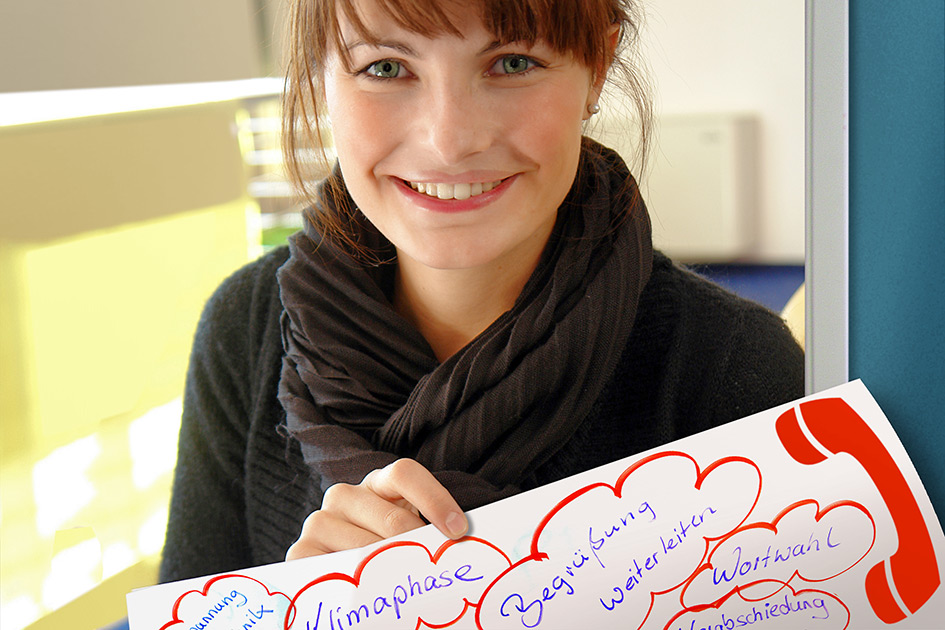 Klimaphase
Begrüßung
weiterleiten
Wortwahl
Verabschiedung